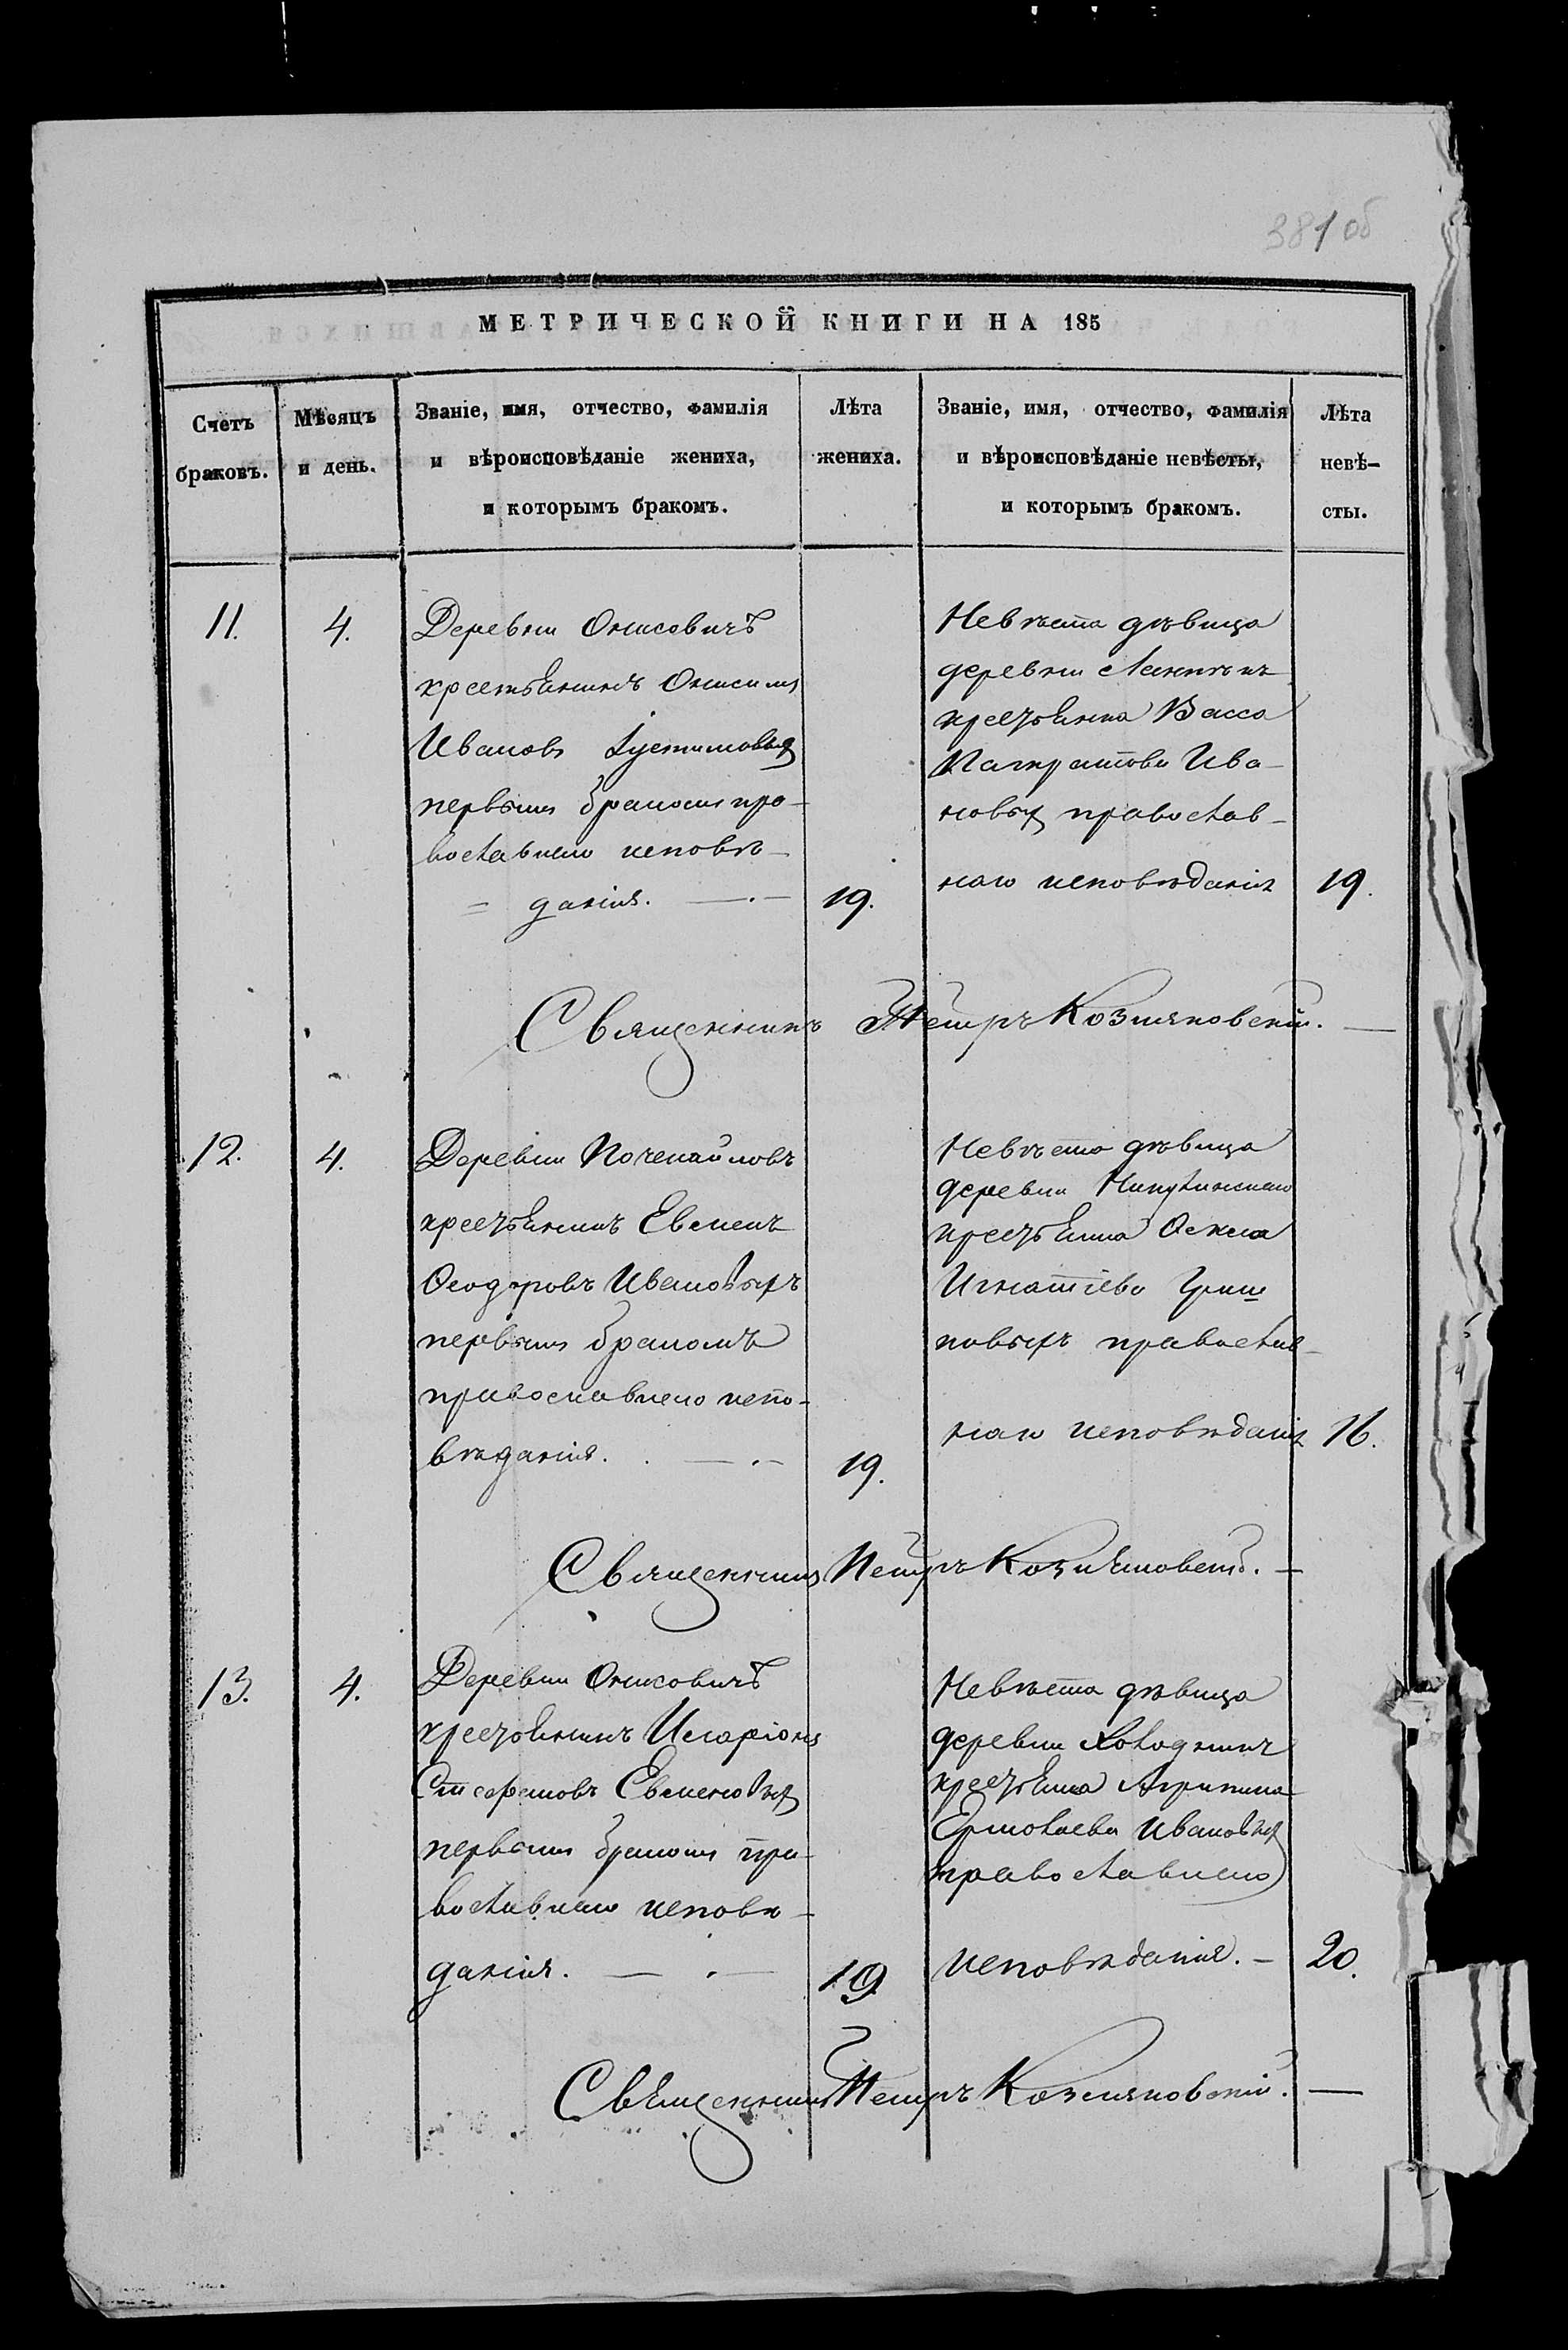 381 об
МЕТРИЧЕСКОЙ КНИГИ НА 185
Счетъ браковъ.
Мѣсяцъ и день.
Званіе, имя, отчество, фамилія
и вѣроисповѣданіе жениха,
и которымъ бракомъ.
Лѣта
жениха.
Званіе, имя, отчество, фамилія
и вѣроисповѣданіе невѣсты,
и которымъ бракомъ.
Лѣта
невѣ-
сты.
11.
4.
Деревни Онисовичъ
крестьянинъ Онисимъ
Ивановъ Іустимовыхъ
первымъ бракомъ пра-
вославнаго исповѣ-
= данія.
19.
Невѣста дѣвица
деревни
крестьянка Васса
Панкратова Ива-
новыхъ православ-
наго исповѣданія
19.
Священникъ Петръ Козмяковскій.
12.
4.
Деревни
крестьянинъ Евменъ
Ѳеодоровъ Ивановыхъ
первымъ бракомъ
православнаго испо-
вѣданія.
19.
Невѣста дѣвица
деревни
крестьянка
Игнатіева
новыхъ православ-
наго исповѣданія
16.
Священникъ Петръ Козмяковскій.
13.
4.
Деревни Онисовичъ
крестьянинъ Иларіонъ
Стефановъ Евменовыхъ
первымъ бракомъ пра-
вославнаго исповѣ-
данія.
19
Невѣста дѣвица
деревни Холодникъ
крестьянка Агрипина
Ермолаева Ивановыхъ
православнаго
исповѣданія.
20.
Священникъ Петръ Козмяковскій.